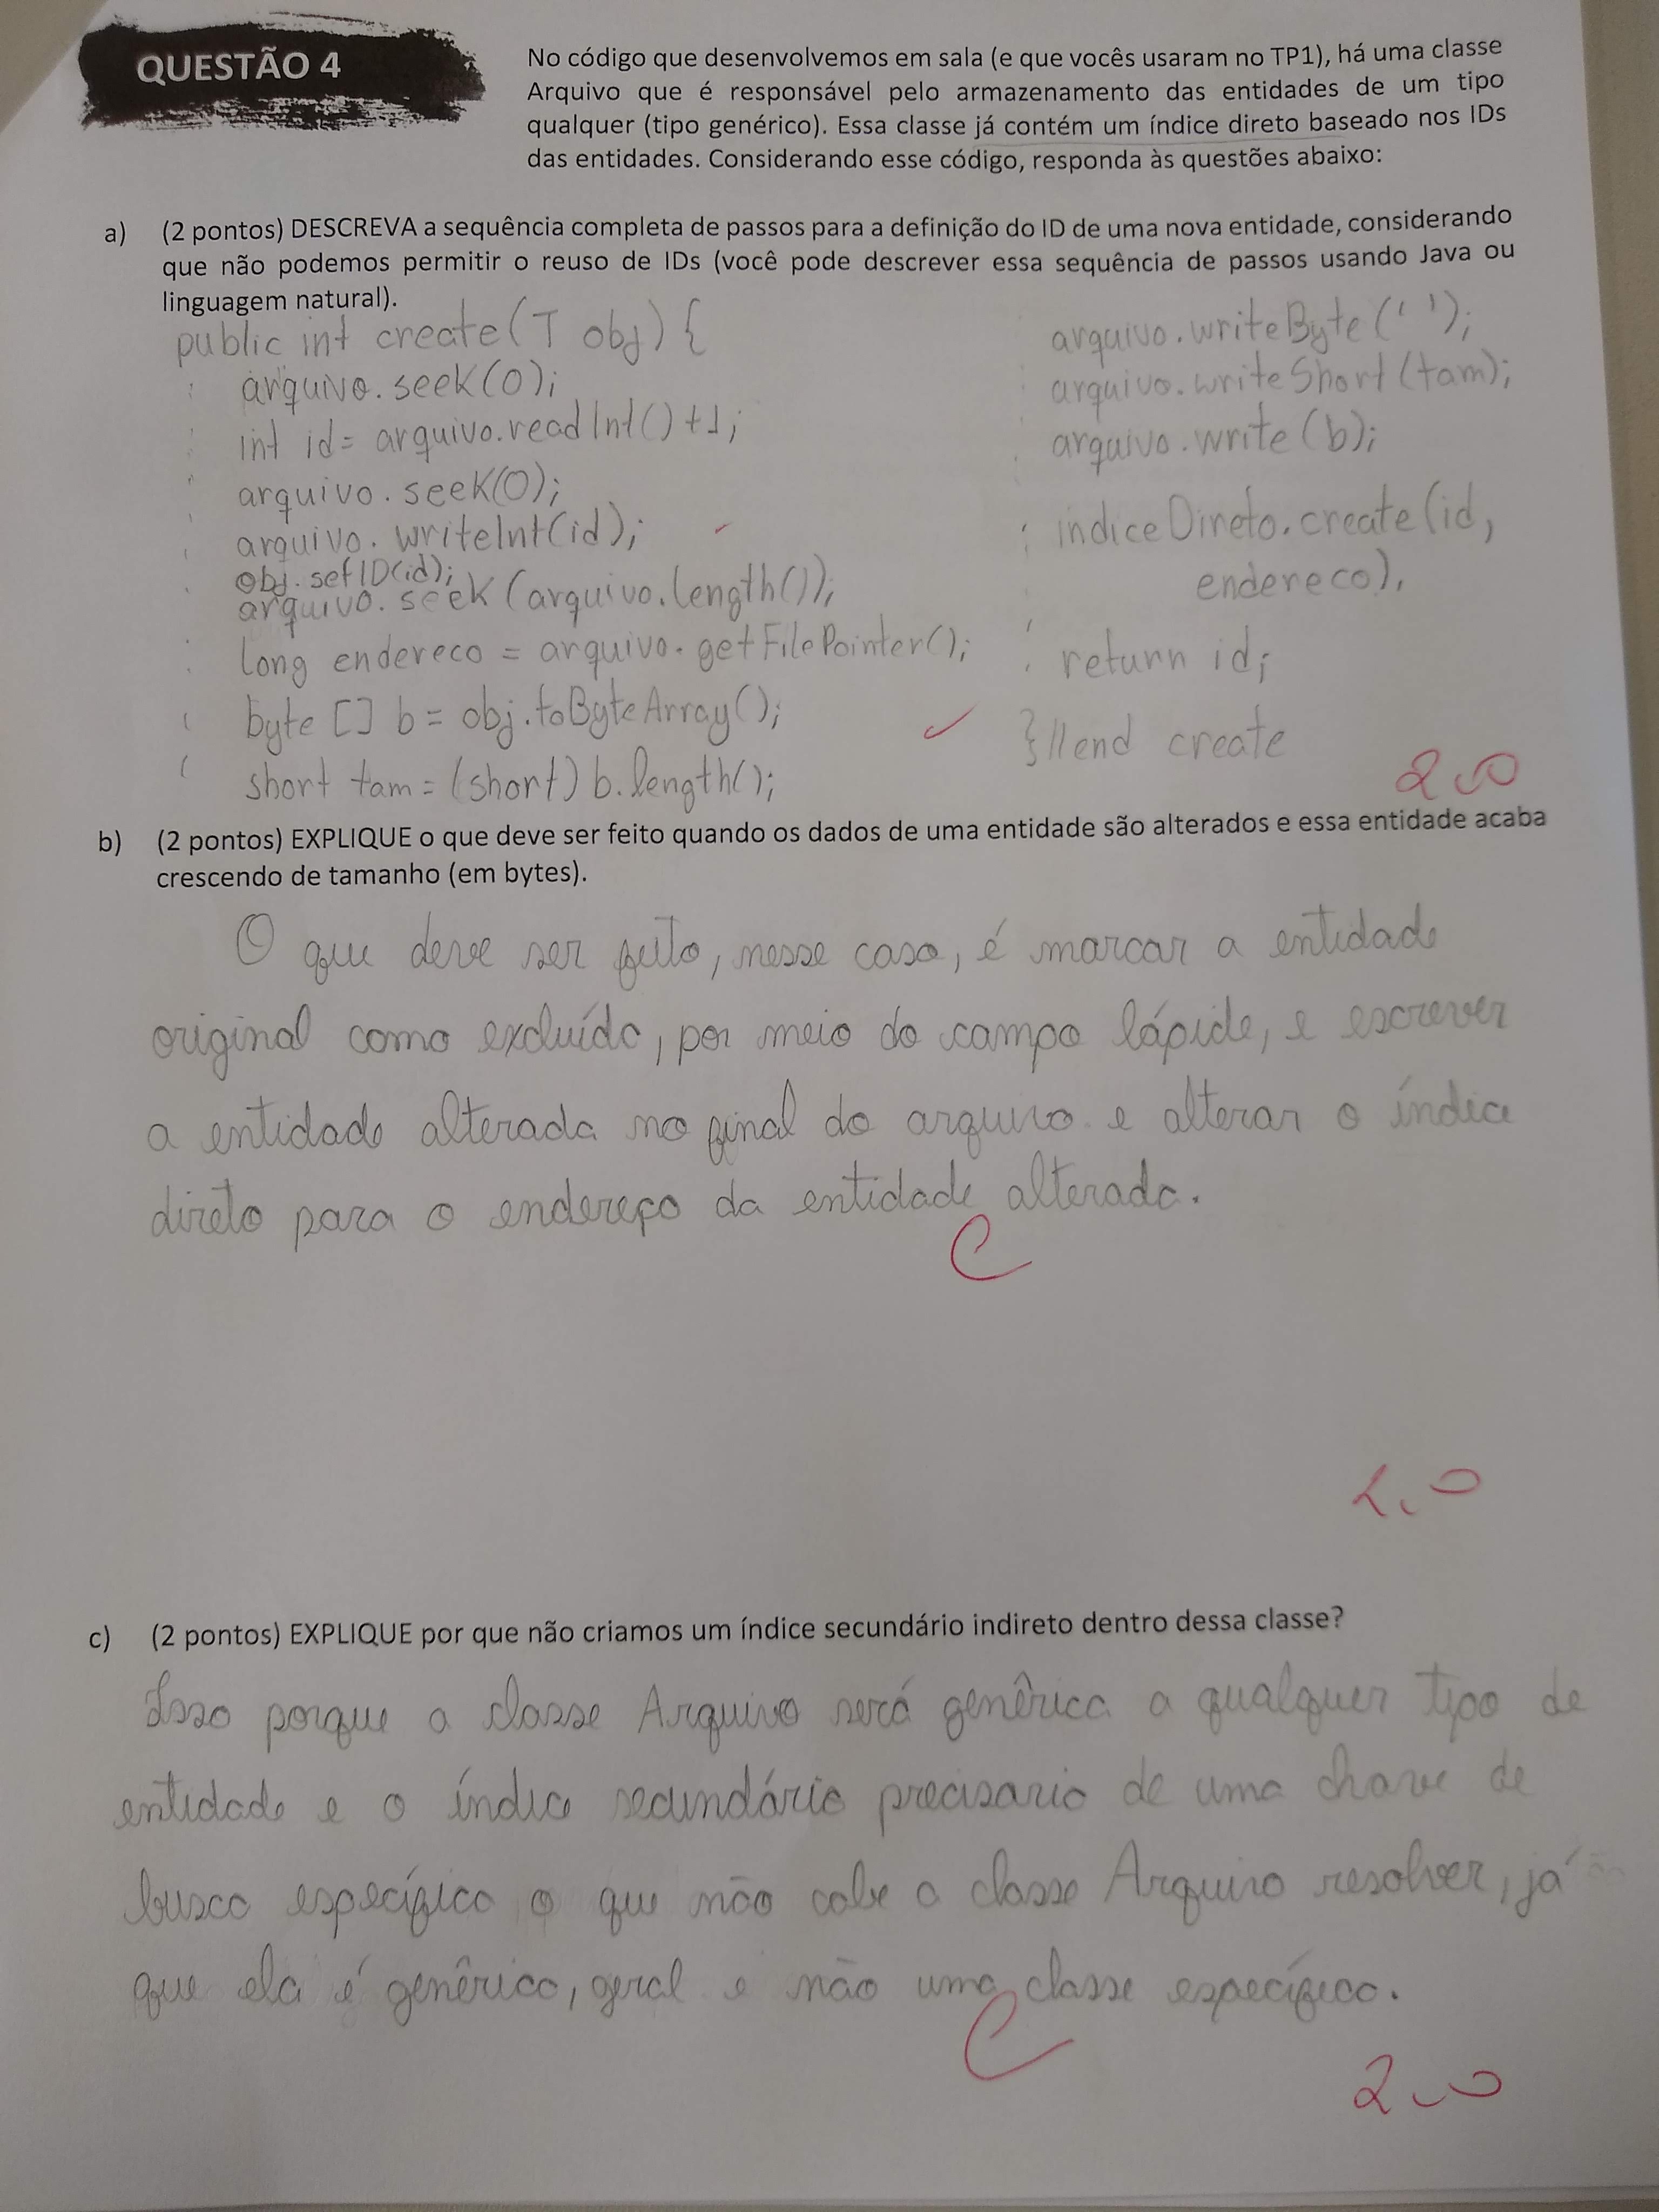 QUESTÃO 4
No código que desenvolvemos em sala (e que vocês usaram no TP1), há uma classe
Arquivo que é responsável pelo armazenamento das entidades de um tipo
qualquer (tipo genérico). Essa classe já contém um índice direto baseado nos IDs
das entidades. Considerando esse código, responda às questões abaixo:
a) (2 pontos) DESCREVA a sequência completa de passos para a definição do ID de uma nova entidade, considerando
que não podemos permitir o reuso de IDs (você pode descrever essa sequência de passos usando Java ou
linguagem natural).
public int create(T obj) {
arquivo.seek(0);
int id= arquivo.readInt()+1;
arquivo.seek(0);
arquivo.writeInt(id);
obj.setID(id);
arquivo.seek(arquivo.length());
long endereco = arquivo.getFilePointer();
byte [] b = obj.toByteArray();
short tam = (short) b.length();
arquivo.writeByte(' ');
arquivo.writeShort(tam);
arquivo.write(b);
indiceDireto.create(id,
endereco),
return id;
}//end create
2.0
b) (2 pontos) EXPLIQUE o que deve ser feito quando os dados de uma entidade são alterados e essa entidade acaba
crescendo de tamanho (em bytes).
O que deve ser feito, nesse caso, é marcar a entidade
original como excluída, por meio do campo lápide, e escrever
a entidade alterada no final do arquivo e alterar o índice
direto para o endereço da entidade alterada.
C
2.0
c) (2 pontos) EXPLIQUE por que não criamos um índice secundário indireto dentro dessa classe?
Isso porque a classe Arquivo será genérica a qualquer tipo de
entidade e o índice secundário precisaria de uma chave de
busca específica o que não cabe a classe Arquivo resolver, já
que ela é genérica, geral e não uma classe específica.
C
2.0